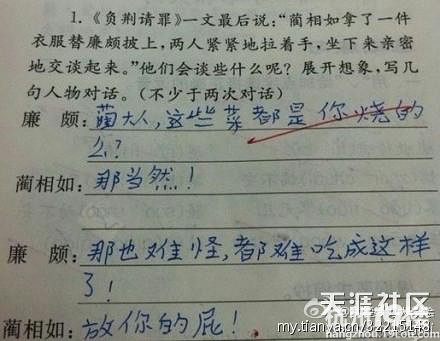 1.《负荆请罪》一文最后说:“蔺相如拿了一件
衣服替廉颇披上,两人紧紧地拉着手,坐下来亲密
地交谈起来。”他们会谈些什么呢?展开想象,写几
句人物对话。(不少于两次对话)
廉 颇:蔺大人,这些菜都是你烧的
么?
蔺相如:那当然!
廉 颇:那也难怪,都难吃成这样
了!
蔺相如:放你的屁!
天涯社区